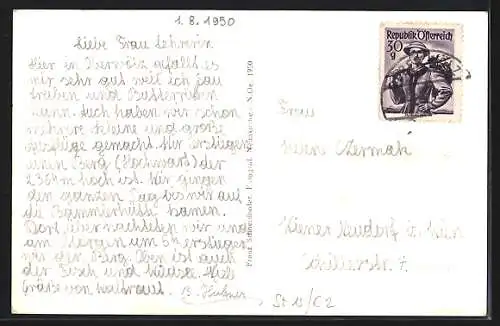 1.8.1950
Liebe Frau Lehrerin
Hier in gefällt es
mir sehr gut weil ich
und
kann. Auch haben wir schon
mehrere kleine und große
Ausflüge gemacht. Wir erstiegen
einen Berg (Hochwart) der
2364 m hoch ist. Wir gingen
den ganzen Tag bis wir auf
die kamen.
Dort übernachteten wir und
am Morgen um 5h erstiegen
wir den Berg. Oben ist auch
der Tisch und Viele
Grüße von Waltraut.
B. Hübner
Franz N.-Oe. 1930
Republik Österreich
30
g
Frau
Czermak
Wiener Neudorf b. Wien
Schillerstr. 7
St 11/C2